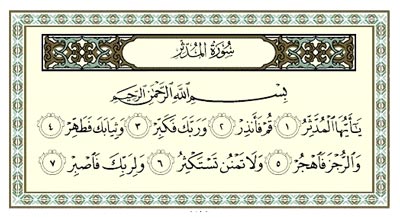 سُورَةُ المُدَّثِّر
بِسْمِ ٱللَّهِ ٱلرَّحْمَٰنِ ٱلرَّحِيمِ
يَٰٓأَيُّهَا ٱلْمُدَّثِّرُ ١ قُمْ فَأَنذِرْ ٢ وَرَبَّكَ فَكَبِّرْ ٣ وَثِيَابَكَ فَطَهِّرْ ٤
وَٱلرُّجْزَ فَٱهْجُرْ ٥ وَلَا تَمْنُن تَسْتَكْثِرُ ٦ وَلِرَبِّكَ فَٱصْبِرْ ٧